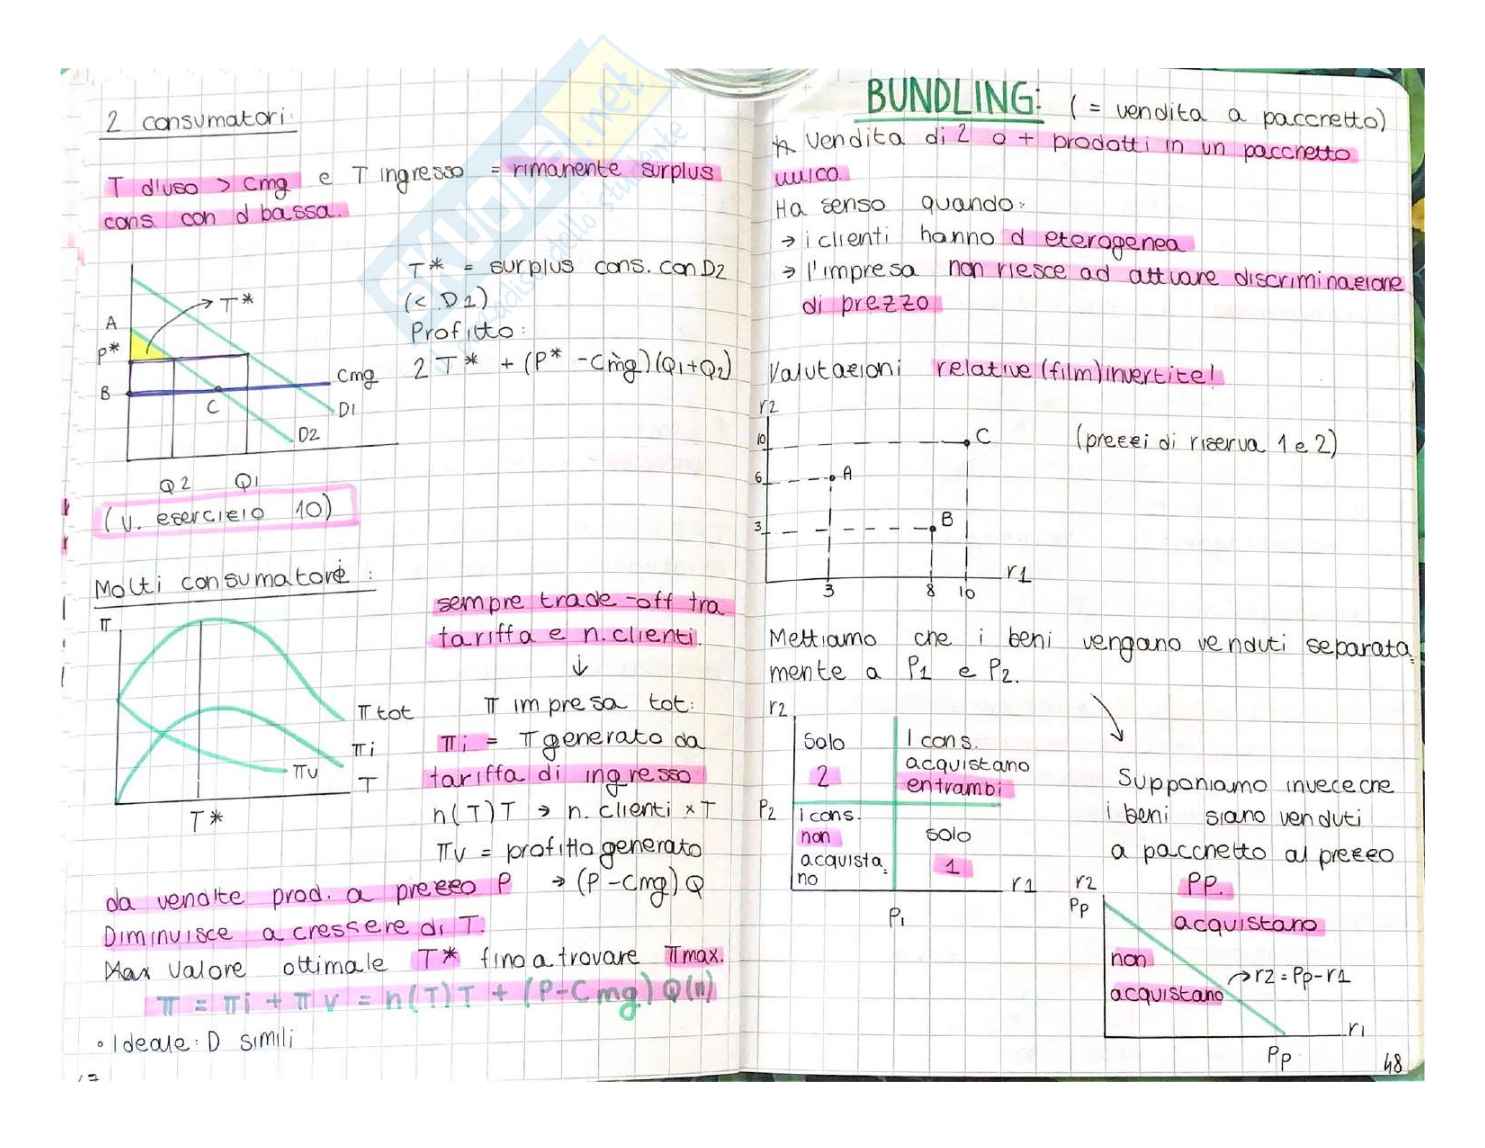 2 consumatori:
T d'uso > Cmg e T ingresso = rimanente surplus
cons con d bassa.
T* = surplus cons. con D2
(< D2)
Profitto:
2 T* + (P* - Cmg)(Q1+Q2)
T*
A
P*
B
C
Cmg
D1
D2
Q2 Q1
(v. esercizio 10)
Molti consumatori:
π
π tot
πi
πv
T
T*
sempre trade-off tra
tariffa e n. clienti.
↓
π impresa tot:
πi = π generato da
tariffa di ingresso
n(T)T → n. clienti × T
πv = profitto generato
da vendite prod. a prezzo P → (P-Cmg)Q
Diminuisce a cressere di T.
Max valore ottimale T* fino a trovare πmax.
π = πi + πv = n(T)T + (P-Cmg)Q(n)
• Ideale: D simili
BUNDLING: (= vendita a pacchetto)
Vendita di 2 o + prodotti in un pacchetto
unico.
Ha senso quando:
→ i clienti hanno d eterogenea
→ l'impresa non riesce ad attuare discriminazione
di prezzo
Valutazioni relative (film) invertite!
r2
10
C
6
A
3
B
r1
3 8 10
(prezzi di riserva 1 e 2)
Mettiamo che i beni vengano venduti separata=
mente a P1 e P2.
r2
Solo
2
I cons.
acquistano
entrambi
P2
i cons.
non
acquista=
no
solo
1
r1
P1
Supponiamo invece che
i beni siano venduti
a pacchetto al prezzo
PP.
r2
Pp
acquistano
non
acquistano
→ r2 = Pp-r1
r1
Pp
48
SKUOLA.net